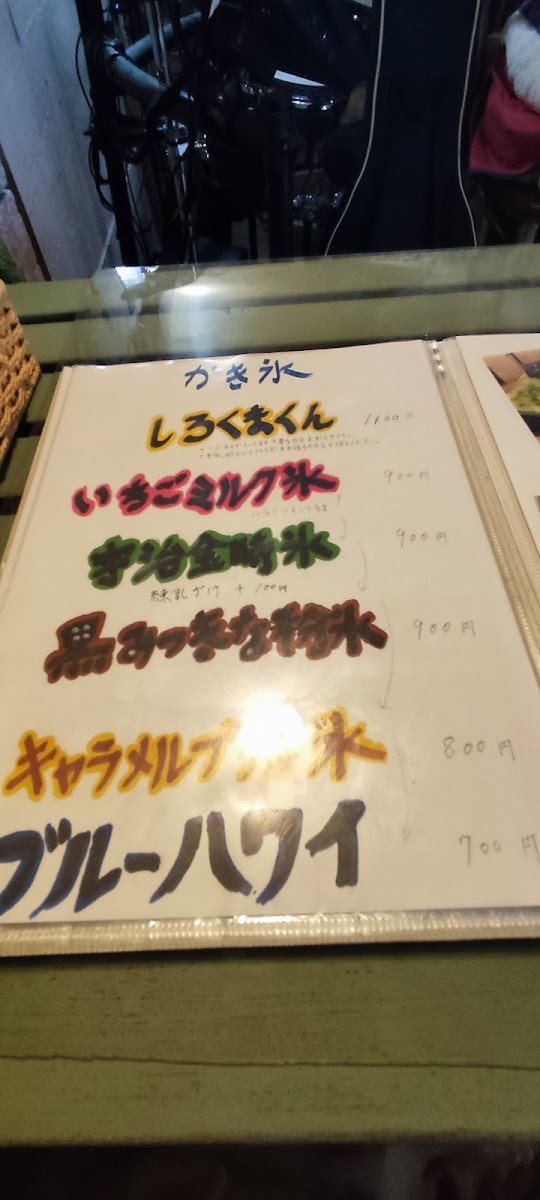 かき氷
しろくまくん 1100円
いちごミルク氷 900円
宇治金時氷 900円
練乳がけ + 100円
黒みつきな粉氷 900円
キャラメルプ 氷 800円
ブルーハワイ 700円